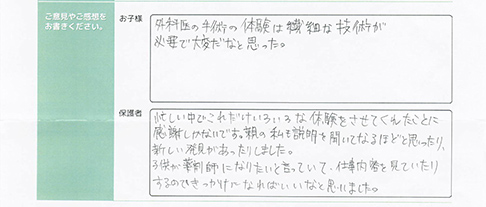 ご意見やご感想を
お書きください。
お子様
外科医の手術の体験は繊細な技術が
必要で大変だなと思った。
保護者
忙しい中でこれだけいろいろな体験をさせてくれたことに
感謝しかないです。親の私も説明を聞いてなるほどと思ったり、
新しい発見があったりしました。
子供が薬剤師になりたいと言っていて、仕事内容を見ていたり
するのできっかけになればいいなと思いました。